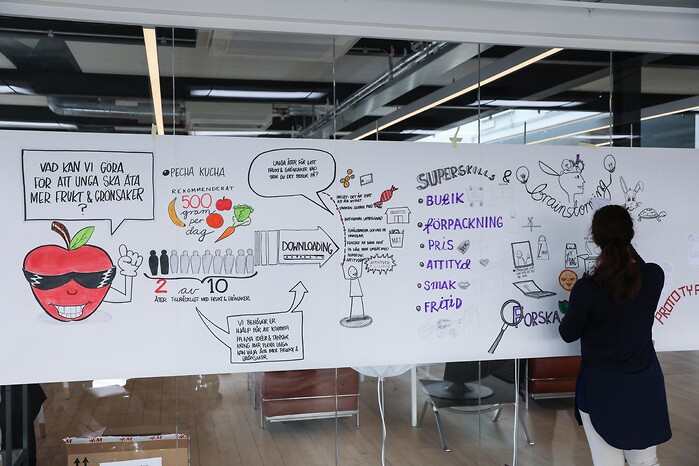 VAD KAN VI GÖRA
FÖR ATT UNGA SKA ÄTA
MER FRUKT & GRÖNSAKER
?
PECHA KUCHA
REKOMMENDERAT
500
gram
per
dag
2 av 10
ÄTER TILLRÄCKLIGT MED FRUKT & GRÖNSAKER.
VI BEHÖVER
HJÄLP FÖR ATT KOMMA
PÅ NYA IDÉER & TANKAR
KRING HUR FLERA UNGA
KAN VÄLJA ÄTA MER FRUKT &
GRÖNSAKER
DOWNLOADING
UNGA ÄTER FÖR LITET
FRUKT & GRÖNSAKER VAD
ATTITYD
SUPERSKILLS &
BUTIK
FÖRPACKNING
PRIS
ATTITYD
SMAK
FRITID
brainstorming
FORSKA
PROTOTYP
H&M